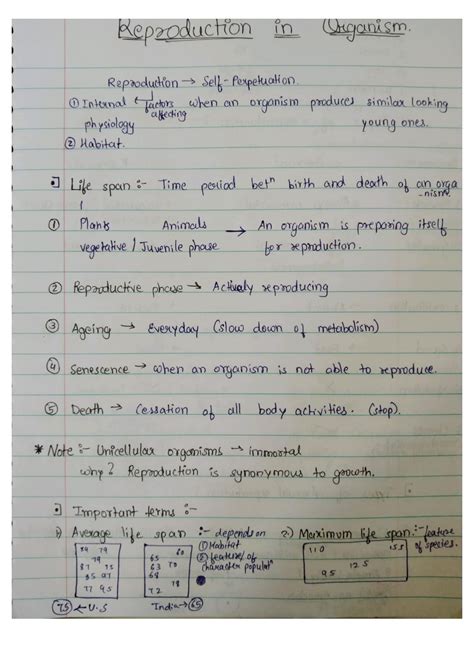 Reproduction in Organism.
Reproduction → Self-Perpetuation.
① Internal ← factors affecting when an organism produces similar looking
physiology young ones.
② Habitat.
Life span :- Time period betⁿ birth and death of an orga
-nism.
① Plants Animals → An organism is preparing itself
vegetative / Juvenile phase for reproduction.
② Reproductive phase → Actively reproducing
③ Ageing → Everyday (slow down of metabolism)
④ Senescence → when an organism is not able to reproduce.
⑤ Death → Cessation of all body activities. (stop).
* Note :- Unicellular organisms → immortal
why? Reproduction is synonymous to growth.
Important terms :-
1) Average life span :- depends on 2) Maximum life span :- feature
① Habitat of species.
② feature/of
character populatⁿ
79
60
65
63 70
68
72 78
77 95
110 155
125
95
75 ← U.S India → 65